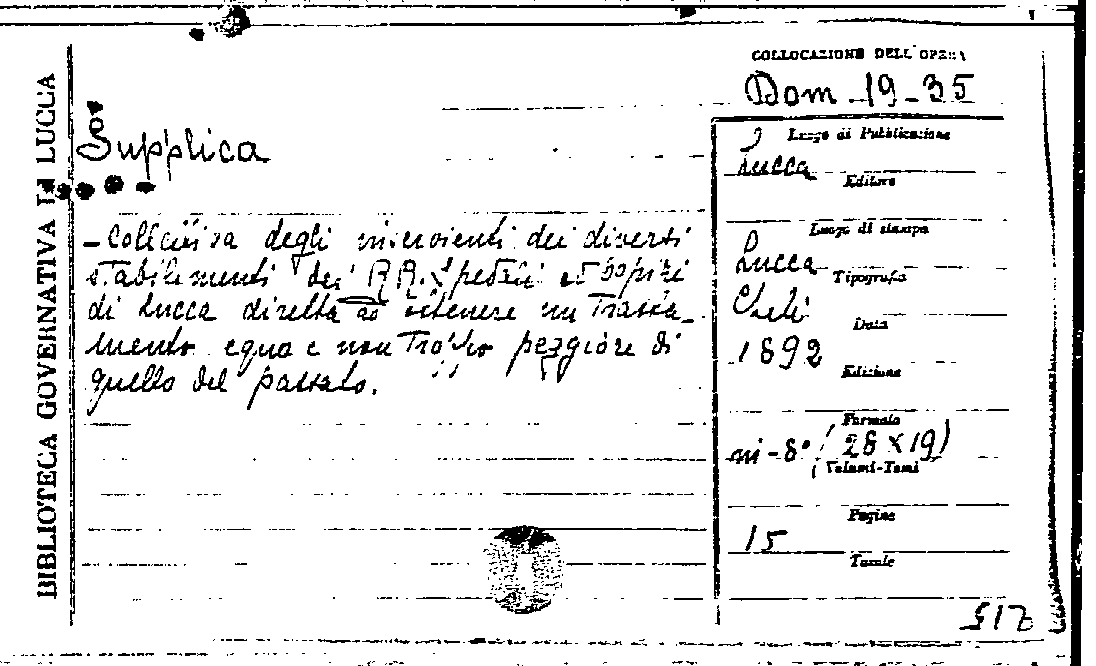 BIBLIOTECA GOVERNATIVA DI LUCCA
COLLOCAZIONE DELL'OPERA
Dom - 19 - 35
Supplica
- Collettiva degli inservienti dei diversi
stabilimenti dei RR. Spedali ed Ospizi
di Lucca diretta ad ottenere un tratta-
mento equo e non troppo peggiore di
quello del passato.
Luogo di Pubblicazione
Lucca
Editore
Luogo di stampa
Lucca
Tipografia
Cheli
Data
1892
Edizione
Formato
in-8° (28 x 19)
Volumi-Tomi
Pagine
15
Tavole